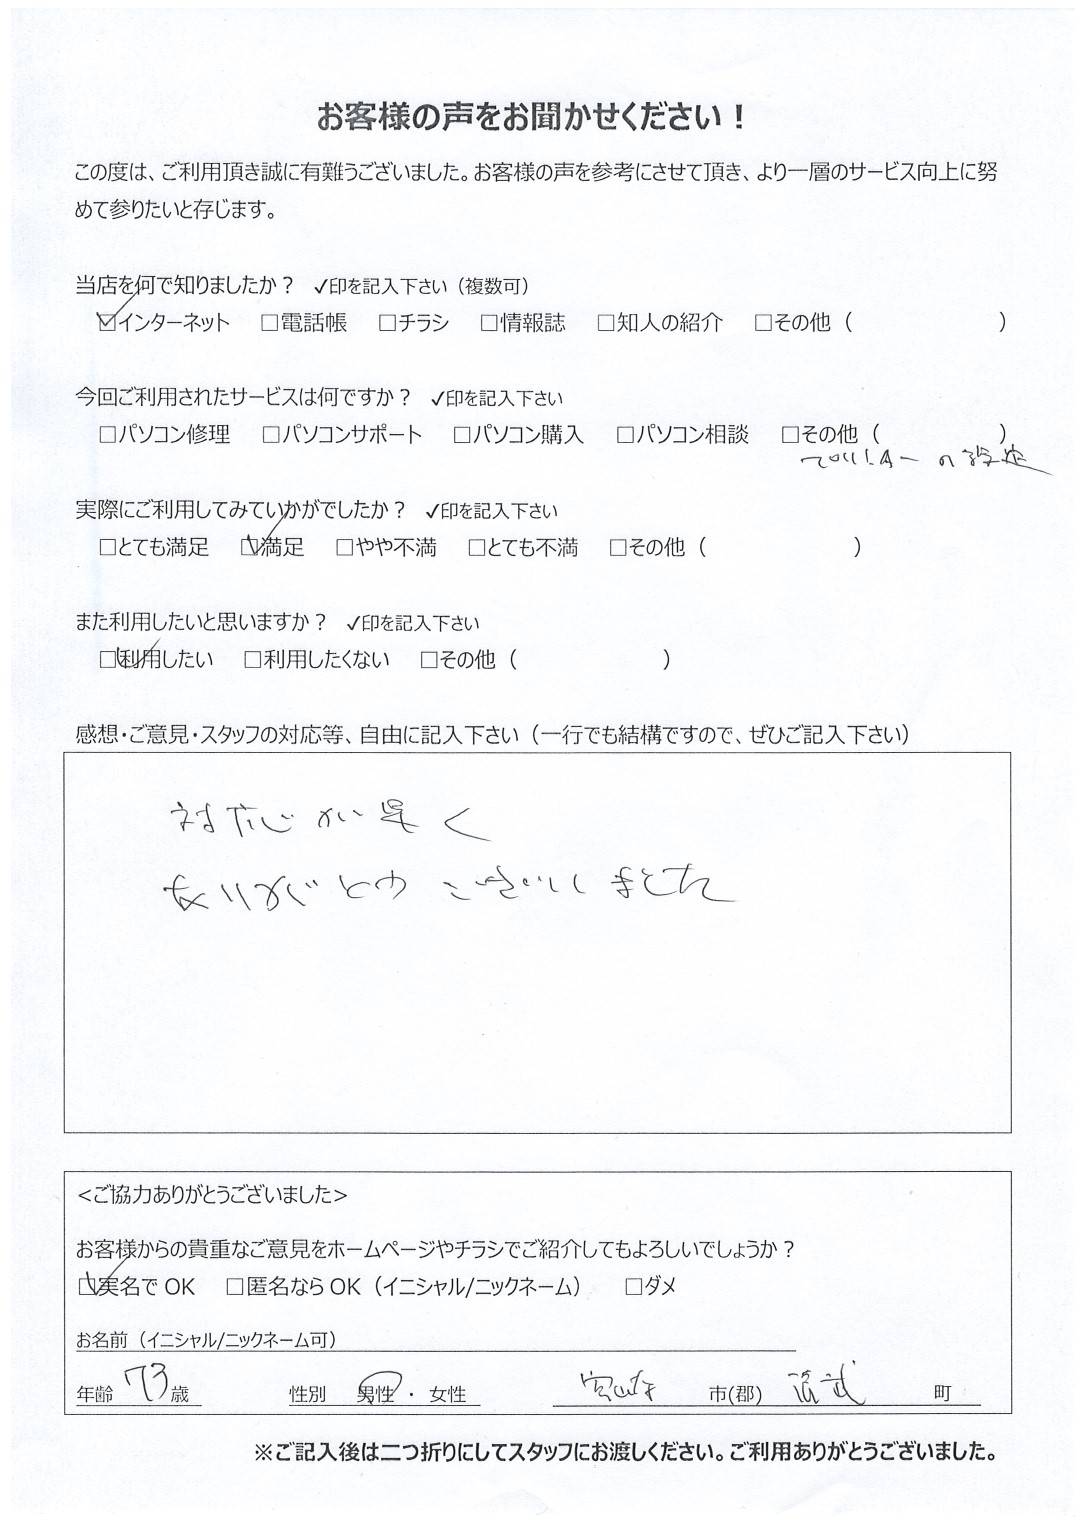 お客様の声をお聞かせください！
この度は、ご利用頂き誠に有難うございました。お客様の声を参考にさせて頂き、より一層のサービス向上に努
めて参りたいと存じます。
当店を何で知りましたか？ ✓印を記入下さい（複数可）
☑インターネット □電話帳 □チラシ □情報誌 □知人の紹介 □その他（ ）
今回ご利用されたサービスは何ですか？ ✓印を記入下さい
□パソコン修理 □パソコンサポート □パソコン購入 □パソコン相談 □その他（ ）
の設定
実際にご利用してみていかがでしたか？ ✓印を記入下さい
□とても満足 ☑満足 □やや不満 □とても不満 □その他（ ）
また利用したいと思いますか？ ✓印を記入下さい
☑利用したい □利用したくない □その他（ ）
感想・ご意見・スタッフの対応等、自由に記入下さい（一行でも結構ですので、ぜひご記入下さい）
対応が早く
ありがとうございました
＜ご協力ありがとうございました＞
お客様からの貴重なご意見をホームページやチラシでご紹介してもよろしいでしょうか？
☑実名でOK □匿名ならOK（イニシャル/ニックネーム） □ダメ
お名前（イニシャル/ニックネーム可）
年齢 73 歳 性別 男性 ・ 女性 宮崎 市(郡) 清武 町
※ご記入後は二つ折りにしてスタッフにお渡しください。ご利用ありがとうございました。